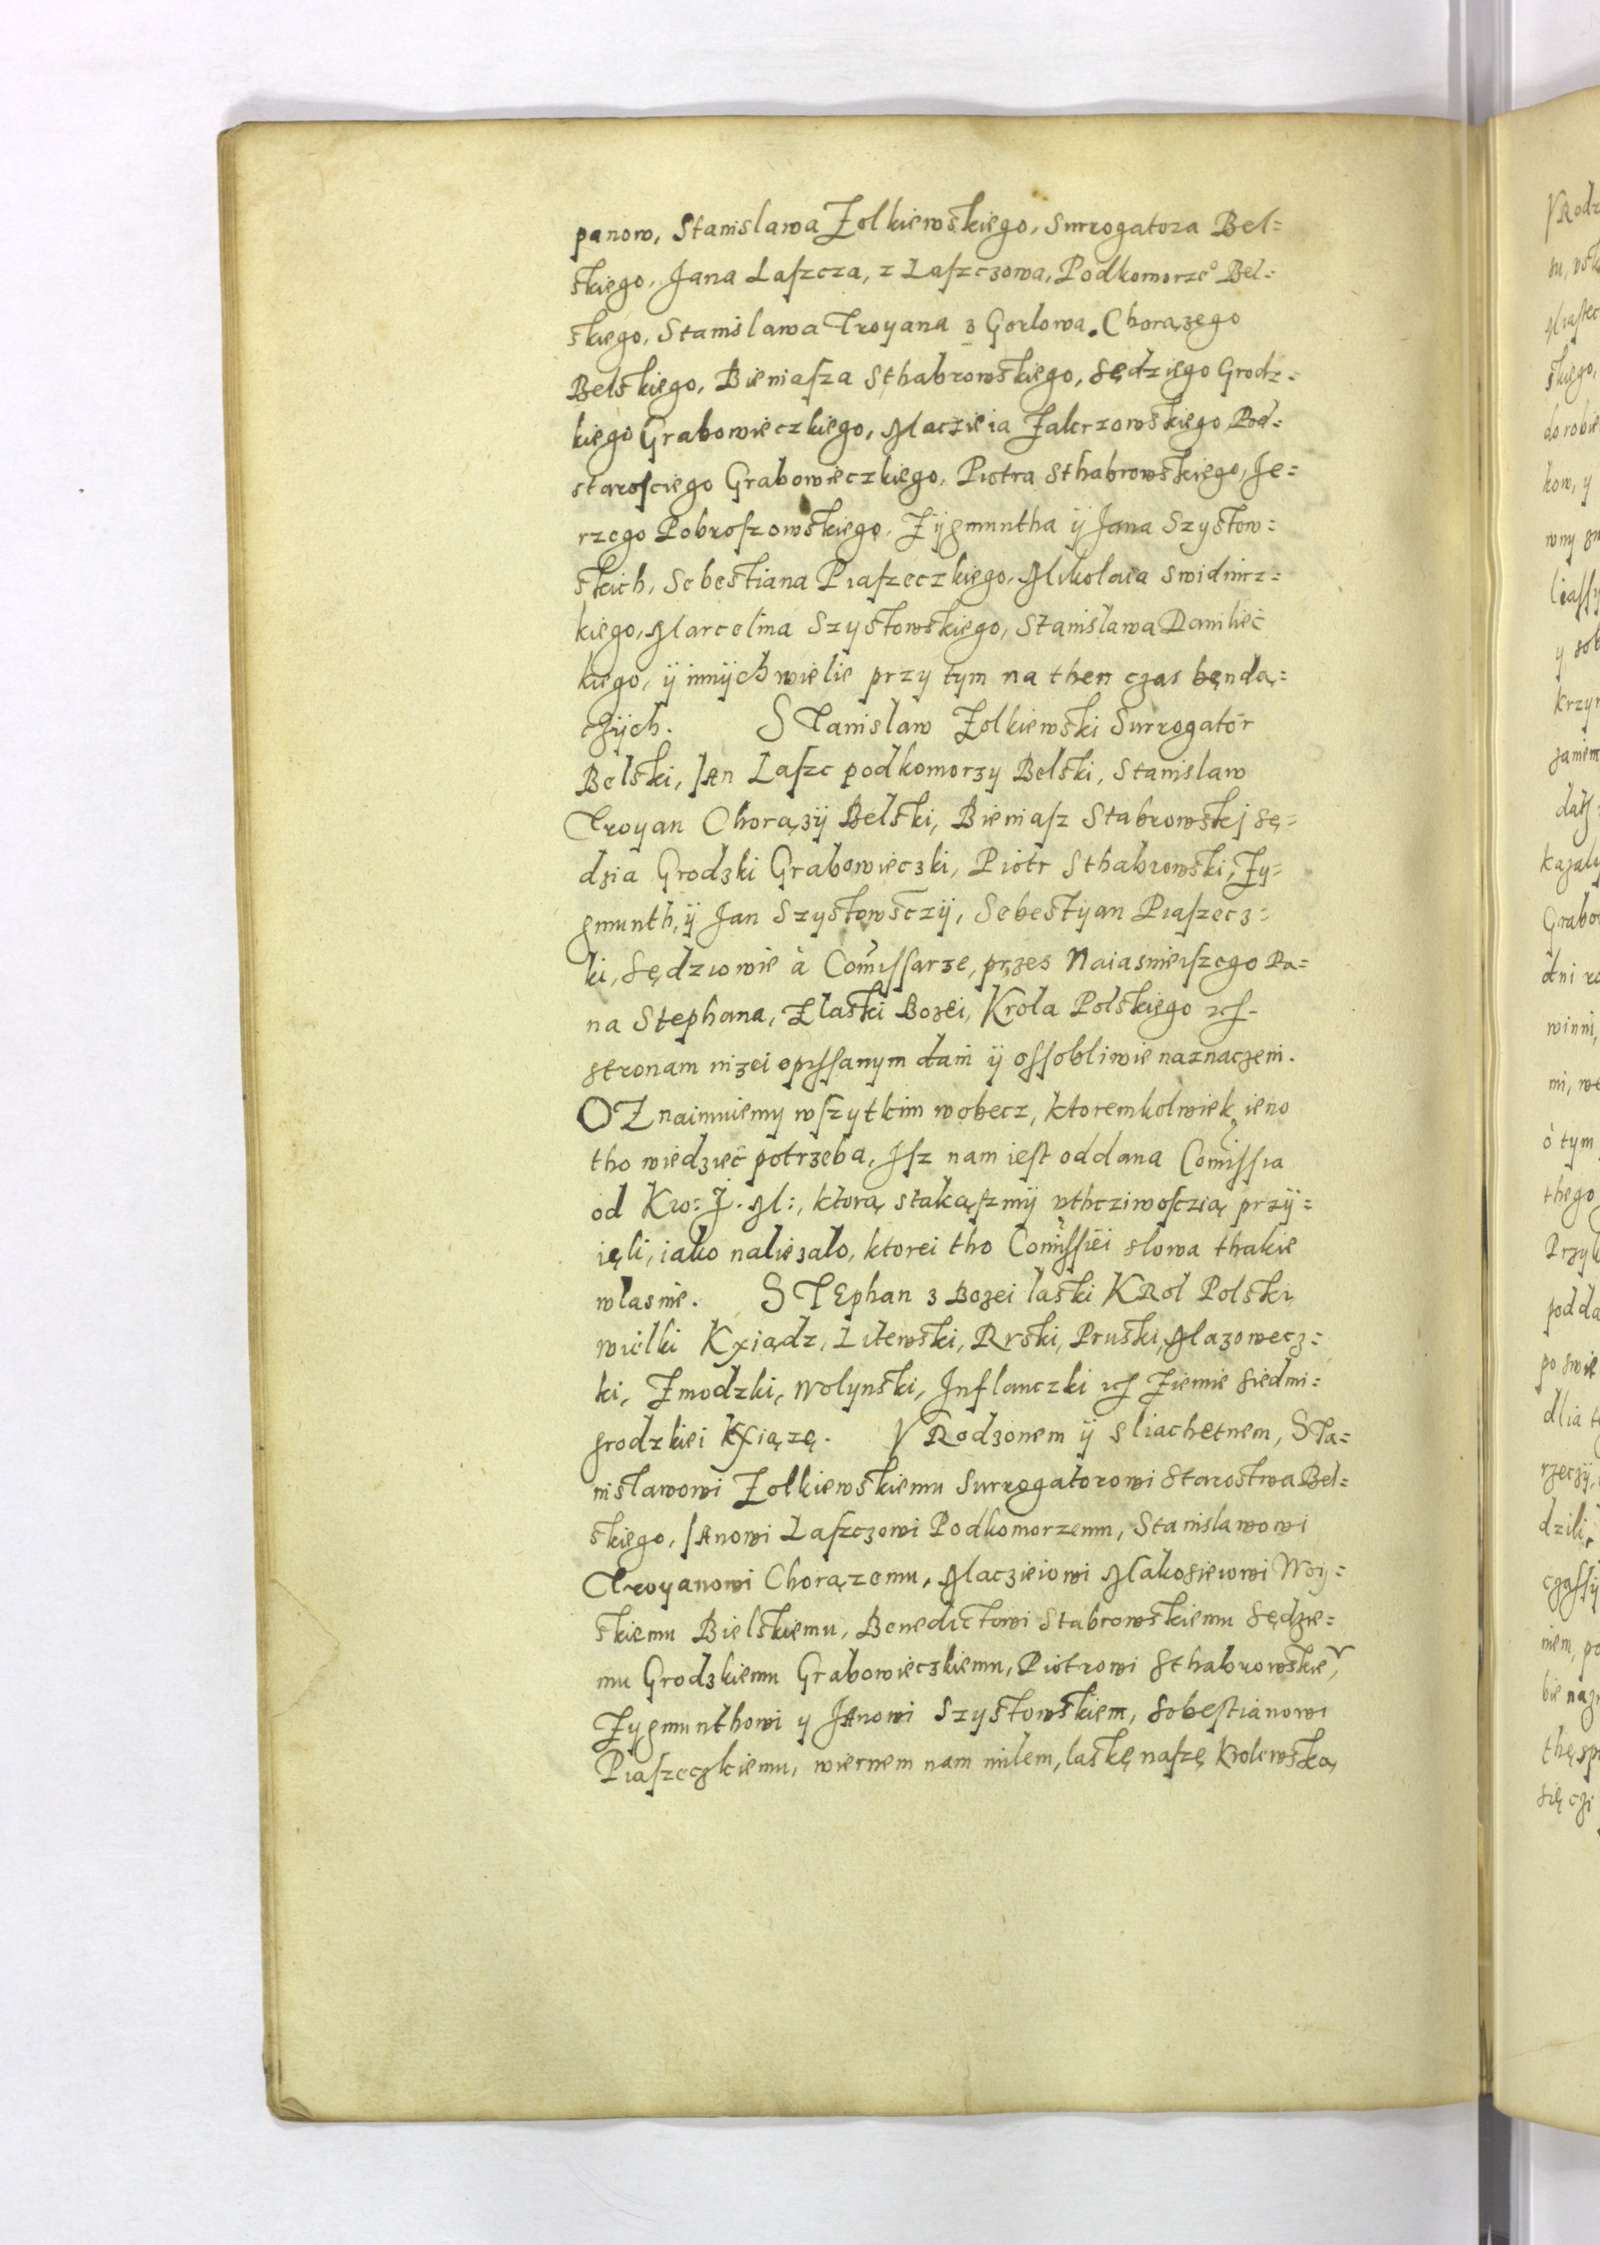 panow, Stanislawa Zolkiewskiego, Surrogatora Bel=
skiego, Jana Laszcza, z Laszczowa, Podkomorze° Bel=
skiego, Stanislawa Troyana z Gorlowa. Chorązego
Belskiego, Bieniasza Sthabrowskiego, Sędziego Grodz=
kiego Grabowieczkiego, Maczieia Zakrzowskiego Pod=
starosciego Grabowieczkiego, Piotra Sthabrowskiego, Je=
rzego Pobroszowskiego, Zÿgmuntha ÿ Jana Szystow=
skich, Sebestiana Piaszeczkiego, Mikolaia Swidnicz=
kiego, Marcelina Szystowskiego, Stanislawa Daniliec
kiego, ÿ innÿch wielie przy tym na then czas bęndą=
czÿch. STanislaw Zolkiewski Surrogator
Belski, JAn Laszc podkomorzy Belski, Stanislaw
Troyan Chorązÿ Belski, Bieniasz Stabrowskj Sę=
dzia Grodzki Grabowieczki, Piotr Sthabrowski, Zy=
gmunth, ÿ Jan Szystowsczÿ, Sebestyan Piaszecz=
ki, Sędziowie à Comissarze, przes Naiasnieiszego Pa=
na Stephana, Z laski Bozei, Krola Polskiego etc.
stronam nizei opissanym dani ÿ ossobliwie naznaczeni.
OZnaimuiemy wszytkim wobecz, ktoremkolwiek ieno
tho wiedzieć potrzeba, Jsz nam iest oddana Comissia
od Kro: J. M:, ktorą stakąszmÿ vthcziwosczią przÿ=
ięli, iako naliezalo, ktorei tho Comissiei slowa thakie
wlasnie. STEphan z Bozei laski KRol Polski
wielki Kxiądz, Litewski, Rvski, Pruski, Mazowecz=
ki, Zmodzki, Wolynski, Inflanczki etc Ziemie Siedmi=
grodzkiei Kxiązę. VRodzonem ÿ sliachetnem, STa=
nislawowi Zolkiewskiemu Surrogatorowi Starostwa Bel=
skiego, JAnowi Laszczowi Podkomorzemu, Stanislawowi
Troyanowi Chorązemu, Macziejowi Makosieiowi Woy=
skiemu Bielskiemu, Benedictowi Stabrowskiemu Sędzie=
mu Grodzkiemu Grabowieczkiemu, Piotrowi Sthabrowskieᵛ,
Zygmunthowi y JAnowi Szystowskiem, Sebestianowi
Piaszeczkiemu, wiernem nam milem, laskę naszę Krolewską